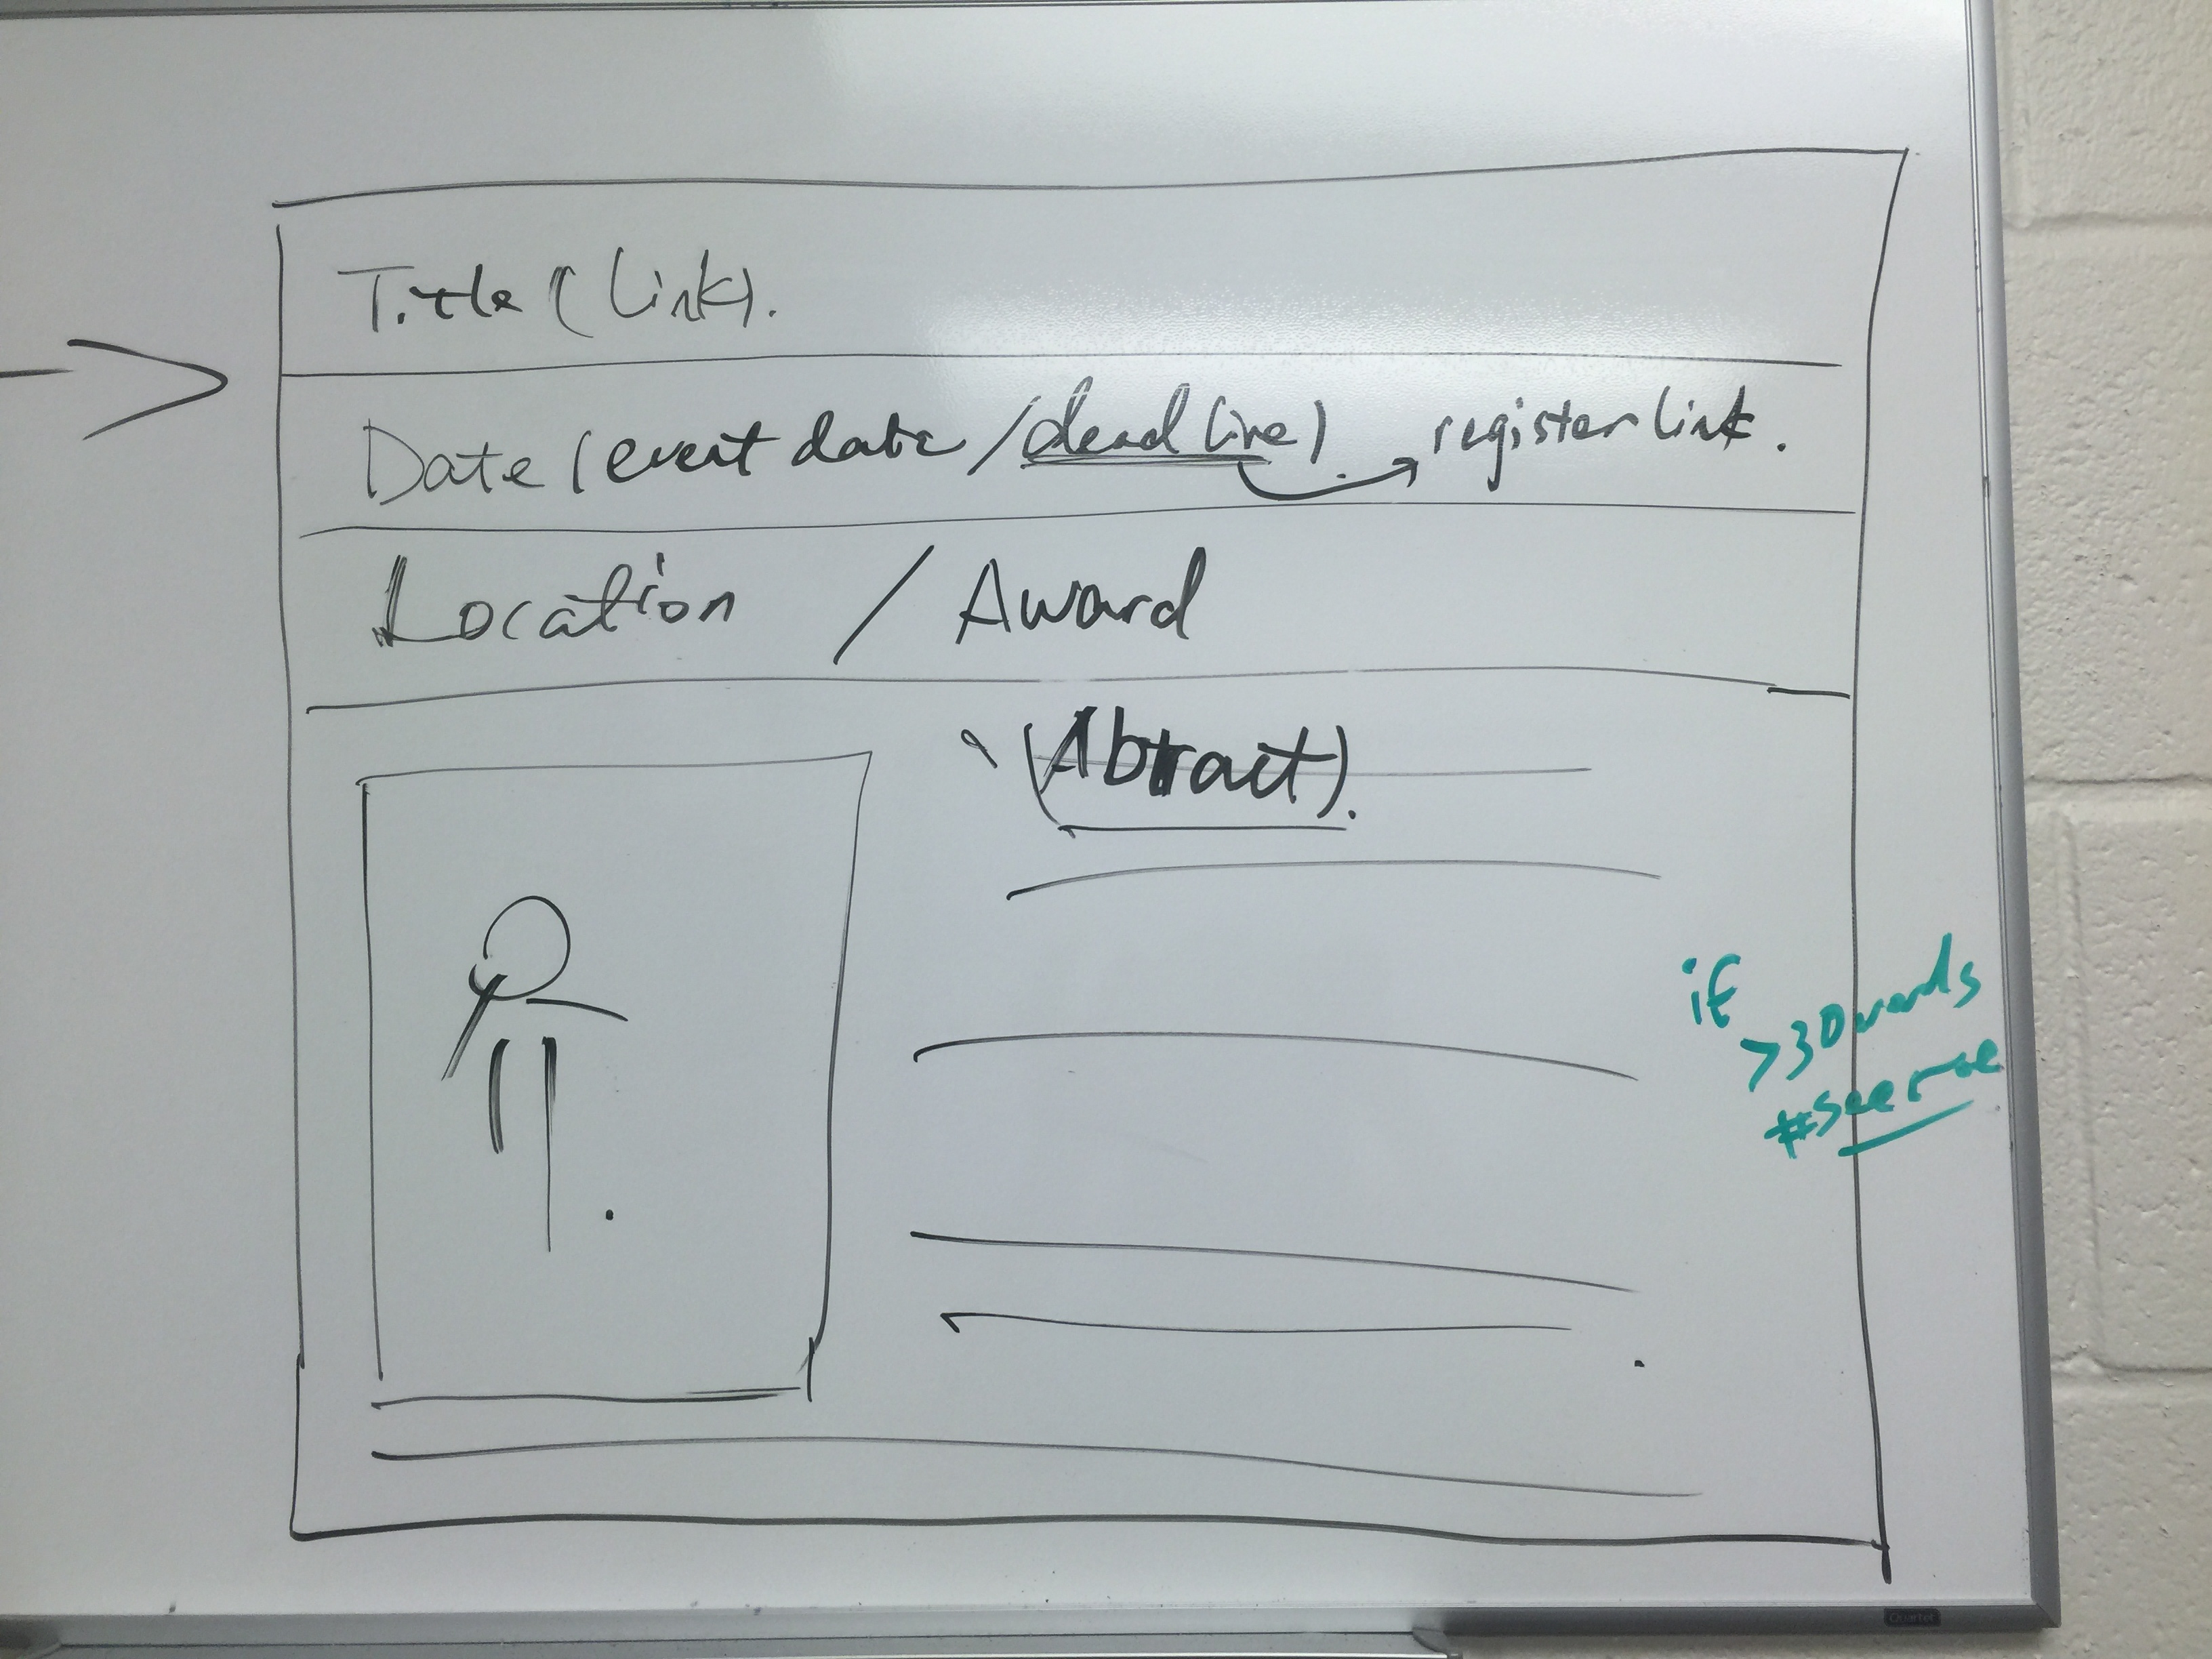 Title (Link).
Date (event date / deadline). register link.
Location / Award
(Abtract).
if
>30words
#see
Quartet